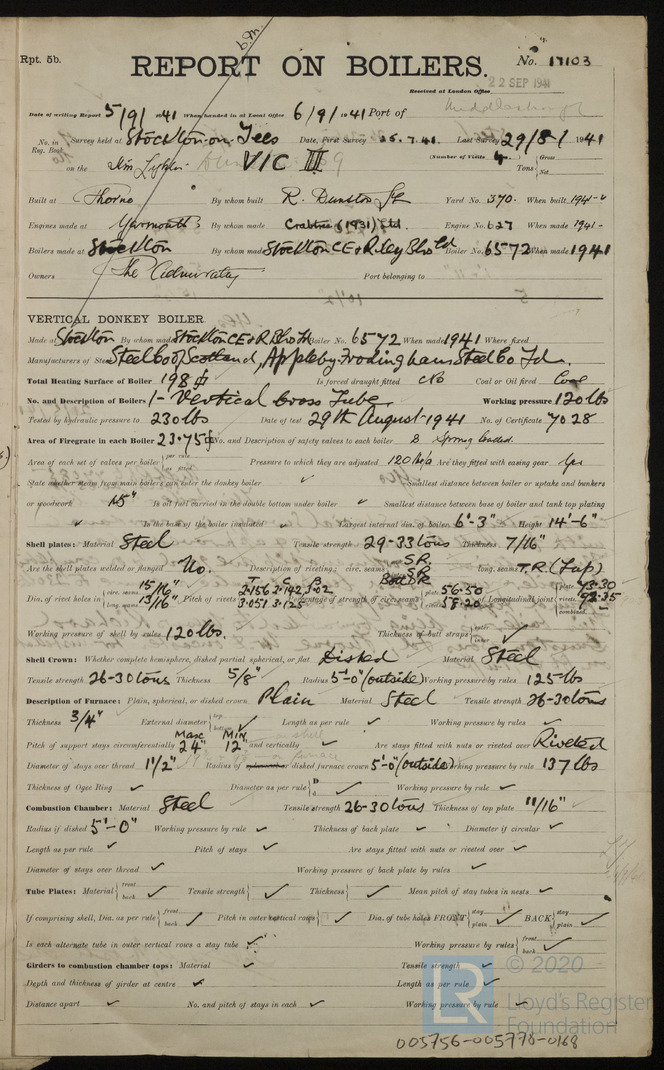 Rpt. 5b.
b.m.
REPORT ON BOILERS.
No. 17103
Received at London Office 22 SEP 1941
Date of writing Report 5/9/1941 When handed in at Local Office 6/9/1941 Port of Middlesbrough
No. in Reg. Book Survey held at Stockton-on-Tees Date, First Survey 25.7.41 Last Survey 29/8/1941
on the VIC III (Number of Visits 4) Tons Gross Net
Built at Thorne By whom built R. Dunston Ld Yard No. 370. When built 1941-
Engines made at Yarmouth By whom made Crabtree (1931) Ltd. Engine No. 627 When made 1941-
Boilers made at Stockton By whom made Stockton C.E. & Riley Blrs Ld Boiler No. 6572 When made 1941
Owners The Admiralty Port belonging to
VERTICAL DONKEY BOILER.
Made at Stockton By whom made Stockton C.E. & R. Blrs Ld Boiler No. 6572 When made 1941 Where fixed
Manufacturers of Steel Steel Co of Scotland, Appleby-Frodingham Steel Co. Ld.
Total Heating Surface of Boiler 198 Is forced draught fitted No Coal or Oil fired Coal
No. and Description of Boilers 1- Vertical Cross Tube Working pressure 120 lbs
Tested by hydraulic pressure to 230 lbs Date of test 29th August 1941 No. of Certificate 7028
Area of Firegrate in each Boiler 23.75 No. and Description of safety valves to each boiler 2 Spring loaded.
Area of each set of valves per boiler per rule as fitted Pressure to which they are adjusted 120 lbs Are they fitted with easing gear Yes
State whether steam from main boilers can enter the donkey boiler ✓ Smallest distance between boiler or uptake and bunkers
or woodwork 15" Is oil fuel carried in the double bottom under boiler ✓ Smallest distance between base of boiler and tank top plating
✓ Is the base of the boiler insulated ✓ Largest internal dia. of boiler 6'-3" Height 14'-6"
Shell plates: Material Steel Tensile strength 29-33 tons Thickness 7/16"
Are the shell plates welded or flanged No. Description of riveting: circ. seams S.R. Bott D.R long. seams T.R. (Lap)
Dia. of rivet holes in circ. seams 15/16" long. seams 13/16" Pitch of rivets T 2.156 C 2.142 B 3.02 3.051 3.125 Percentage of strength of circ. seams plate 56.50 rivets 58.20 of Longitudinal joint plate 73.30 rivets combined
Working pressure of shell by rules 120 lbs. Thickness of butt straps outer inner ✓
Shell Crown: Whether complete hemisphere, dished partial spherical, or flat Dished Material Steel
Tensile strength 26-30 tons Thickness 5/8" Radius 5'-0" (outside) Working pressure by rules 125 lbs
Description of Furnace: Plain, spherical, or dished crown Plain Material Steel Tensile strength 26-30 tons
Thickness 3/4" External diameter top bottom ✓ Length as per rule ✓ Working pressure by rules ✓
Pitch of support stays circumferentially Max 24" Min 12" and vertically ✓ Are stays fitted with nuts or riveted over Riveted
Diameter of stays over thread 1 1/2" Radius of spherical or dished furnace crown 5'-0" (outside) Working pressure by rule 137 lbs
Thickness of Ogee Ring ✓ Diameter as per rule D d ✓ Working pressure by rule ✓
Combustion Chamber: Material Steel Tensile strength 26-30 tons Thickness of top plate 11/16"
Radius if dished 5'-0" Working pressure by rule ✓ Thickness of back plate ✓ Diameter if circular ✓
Length as per rule ✓ Pitch of stays ✓ Are stays fitted with nuts or riveted over ✓
Diameter of stays over thread ✓ Working pressure of back plate by rules ✓
Tube Plates: Material front back ✓ Tensile strength ✓ Thickness ✓ Mean pitch of stay tubes in nests. ✓
If comprising shell, Dia. as per rule front back ✓ Pitch in outer vertical rows ✓ Dia. of tube holes FRONT stay plain ✓ BACK stay plain ✓
Is each alternate tube in outer vertical rows a stay tube ✓ Working pressure by rules front back ✓
Girders to combustion chamber tops: Material ✓ Tensile strength ✓
Depth and thickness of girder at centre ✓ Length as per rule ✓
Distance apart ✓ No. and pitch of stays in each ✓ Working pressure by rule ✓
LR © 2020
Lloyd's Register
Foundation
005756-005778-0168